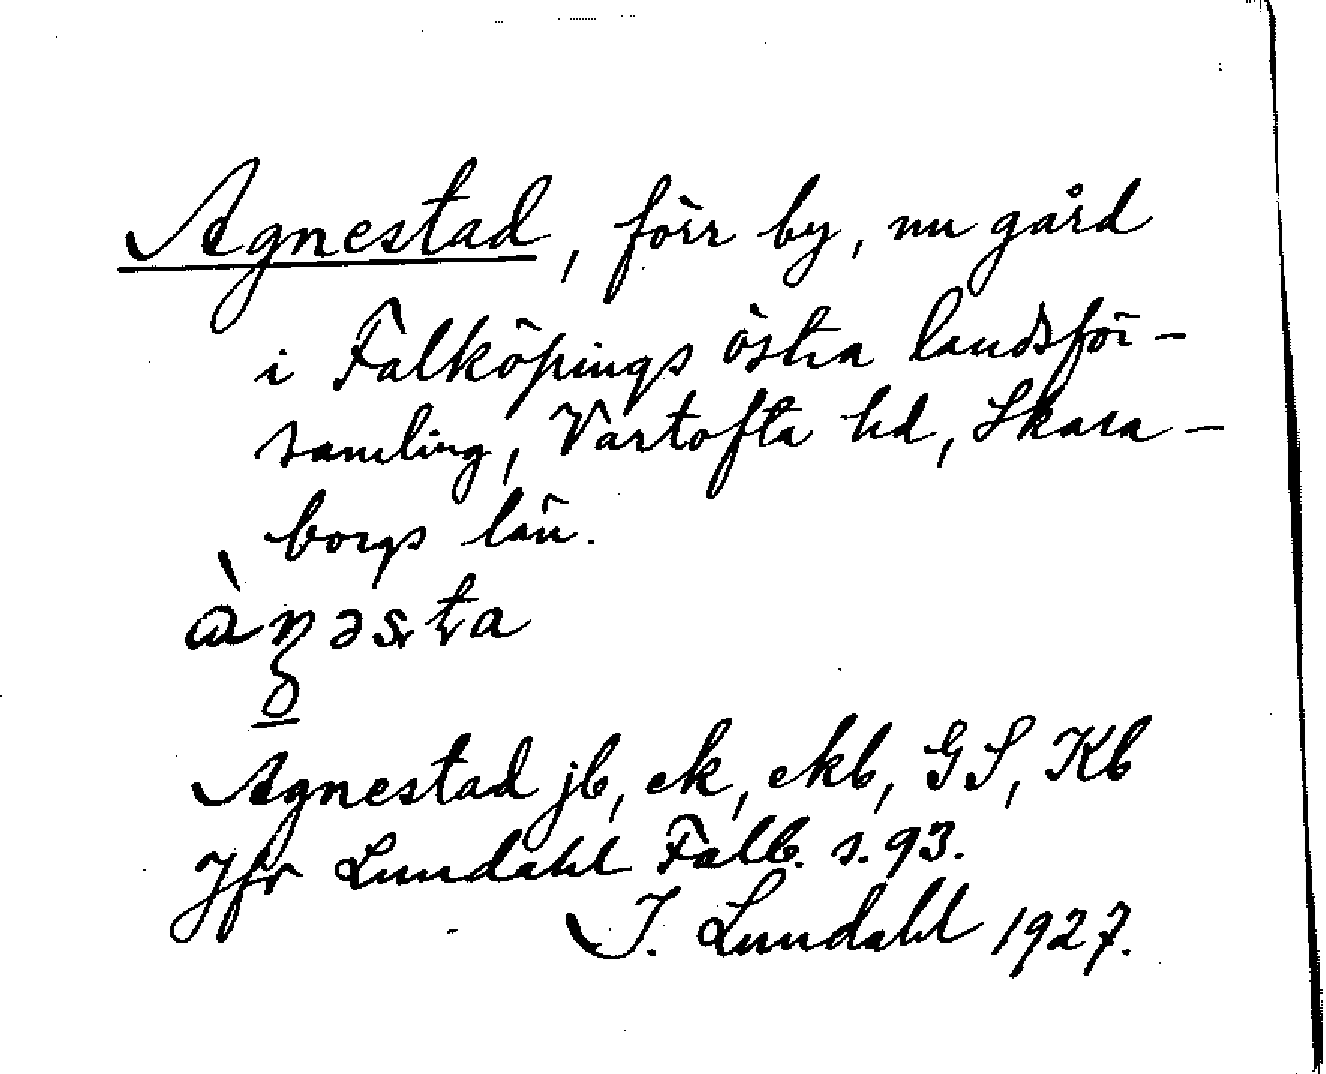 Agnestad, förr by, nu gård
i Falköpings östra landsför-
samling, Vartofta hd, Skara-
borgs län.
ànəsta
Agnestad jb, ek, ekb, GS, Kb
Jfr Lundahl Falb. s. 93.
I. Lundahl 1927.